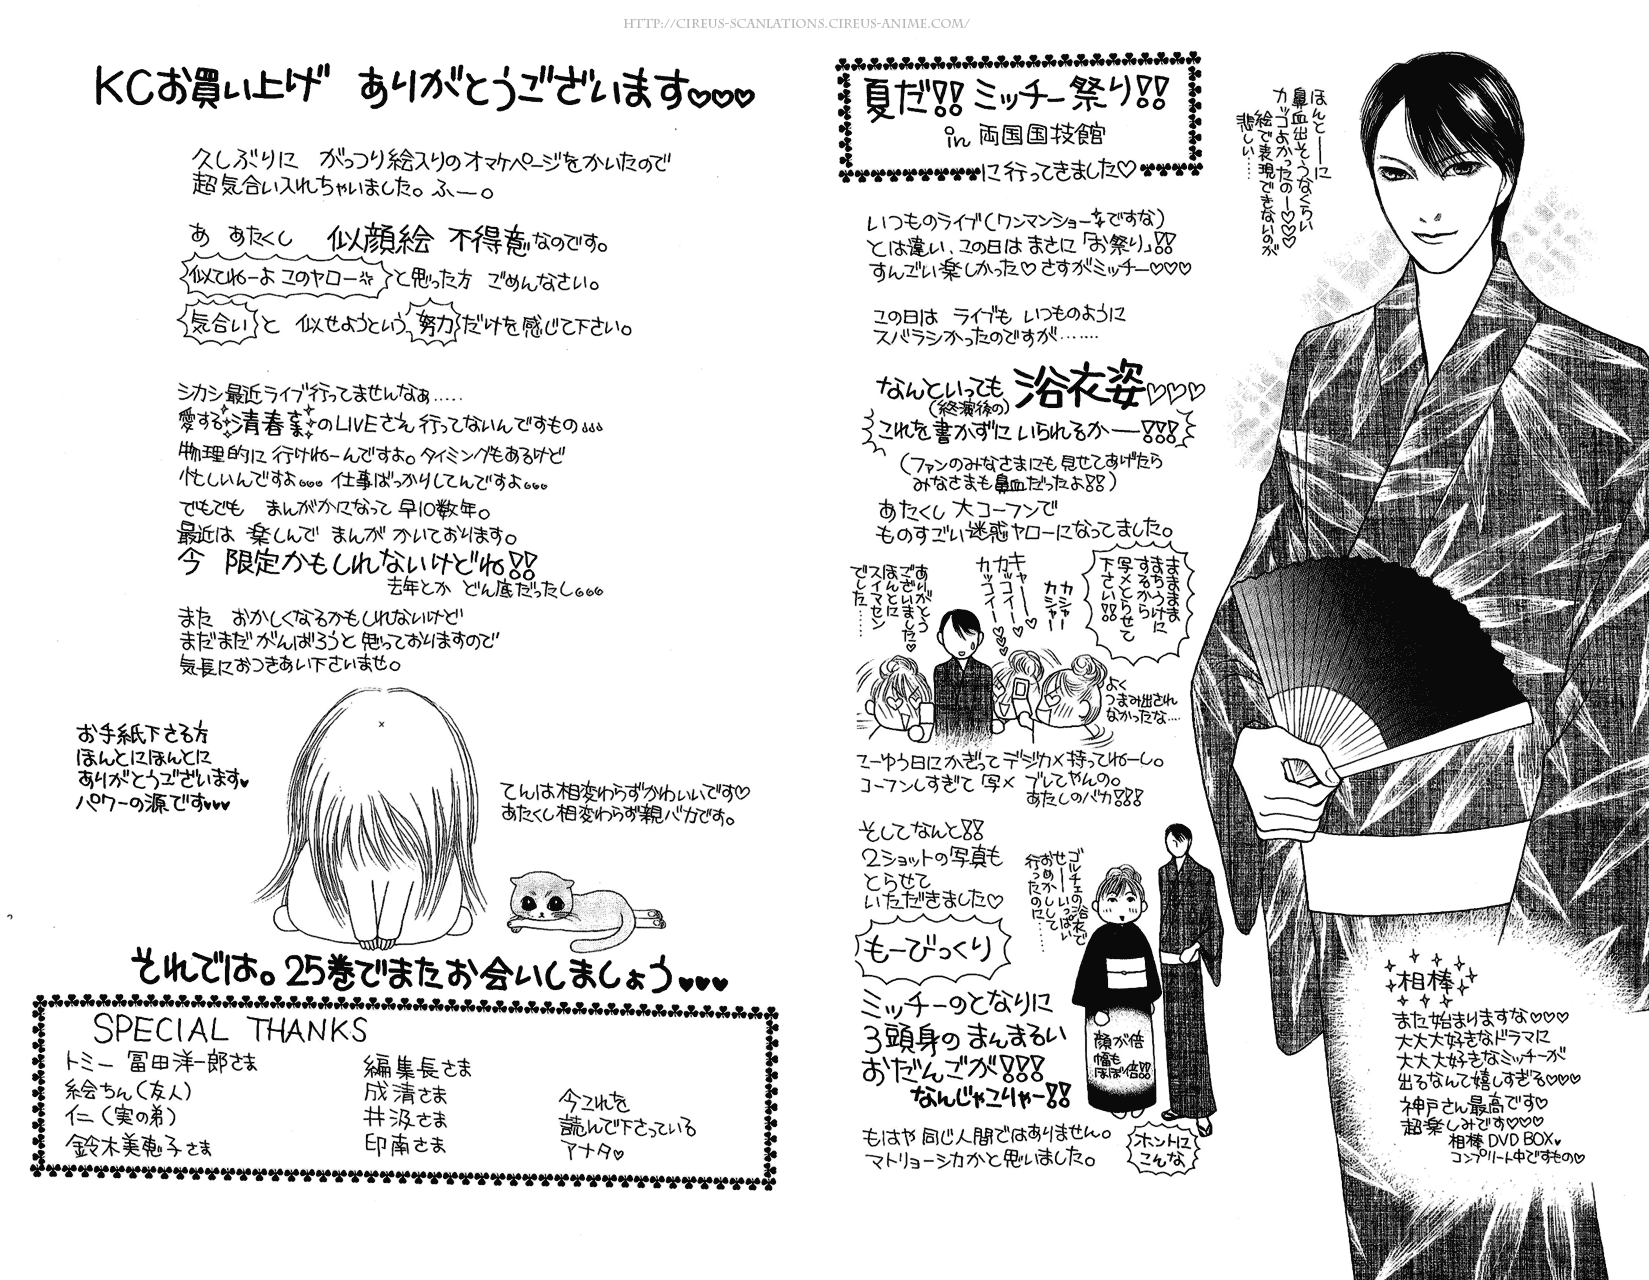 HTTP://CIREUS-SCANLATIONS.CIREUS-ANIME.COM/
ほんとーーに
鼻血出そうなくらい
カッコよかったのー♡♡♡
絵で表現できないのが
悲しい……
夏だ!! ミッチー祭り!!
in 両国国技館
に行ってきました♡
いつものライブ(ワンマンショーですな)
とは違い、この日は まさに「お祭り」!!
すんごい楽しかった♡ さすがミッチー♡♡♡
この日は ライブも いつものように
スバラシかったのですが……
なんといっても 浴衣姿♡♡♡
(終演後の)
これを書かずに いられるかーー!!!
(ファンのみなさまにも 見せてあげたら
みなさまも 鼻血だったよ!!)
あたくし 大コーフンで
ものすごい迷惑ヤローになってました。
まままま
まちうけに
するから
写メとらせて
下さい!!
カシャー
カシャー
キャーー
カッコイーー♡♡♡
カッコイー♡♡
ありがとう
ございました♡
ほんとに
スイマセン
でした……
よく
つまみ出され
なかったな…
てーゆう日にかぎって デジカメ持ってねーし。
コーフンしすぎて 写メ ブレてやんの。
あたしのバカ!!!
そしてなんと!!
2ショットの写真も
とらせて
いただきました♡
ゴルチェの浴衣で
せーーいっぱい
おめかしして
行ったのに……
もーびっくり
ミッチーのとなりに
3頭身の まんまるい
おだんごが!!!
なんじゃこりゃー!!
顔が倍
幅も
ほぼ倍!!
もはや 同じ人間ではありません。
マトリョーシカかと思いました。
ホントに
こんな
相棒
また始まりますな♡♡♡
大大大好きなドラマに
大大大好きなミッチーが
出るなんて嬉しすぎる♡♡♡
神戸さん最高です♡
超楽しみです♡♡♡
相棒 DVD BOX♥
コンプリート中ですもの♡
KCお買い上げ ありがとうございます♡♡♡
久しぶりに がっつり絵入りのオマケページをかいたので
超気合い入れちゃいました。ふー。
あ あたくし 似顔絵 不得意なのです。
似てねーよ このヤロー と思った方 ごめんなさい。
気合い と 似せようという 努力 だけを感じて下さい。
シカシ最近ライブ行ってませんなぁ……
愛する 青春 のLIVEさえ 行ってないんですもの
物理的に 行けねーんですよ。タイミングもあるけど
忙しいんですよ 仕事ばっかりしてんですよ
でもでも まんがかになって 早10数年。
最近は 楽しんで まんが かいております。
今 限定かもしれないけどね!!
去年とか どん底だったし
また おかしくなるかもしれないけど
まだまだ がんばろうと 思っておりますので
気長におつきあい下さいませ。
お手紙下さる方
ほんとにほんとに
ありがとうございます♥
パワーの源です♥♥♥
てんは相変わらずかわいいです♡
あたくし相変わらず親バカです。
それでは。25巻でまたお会いしましょう♥♥♥
SPECIAL THANKS
トミー 冨田洋一郎さま
絵ちん(友人)
仁(実の弟)
鈴木美恵子さま
編集長さま
成清さま
井汲さま
印南さま
今これを
読んで下さっている
アナタ♡